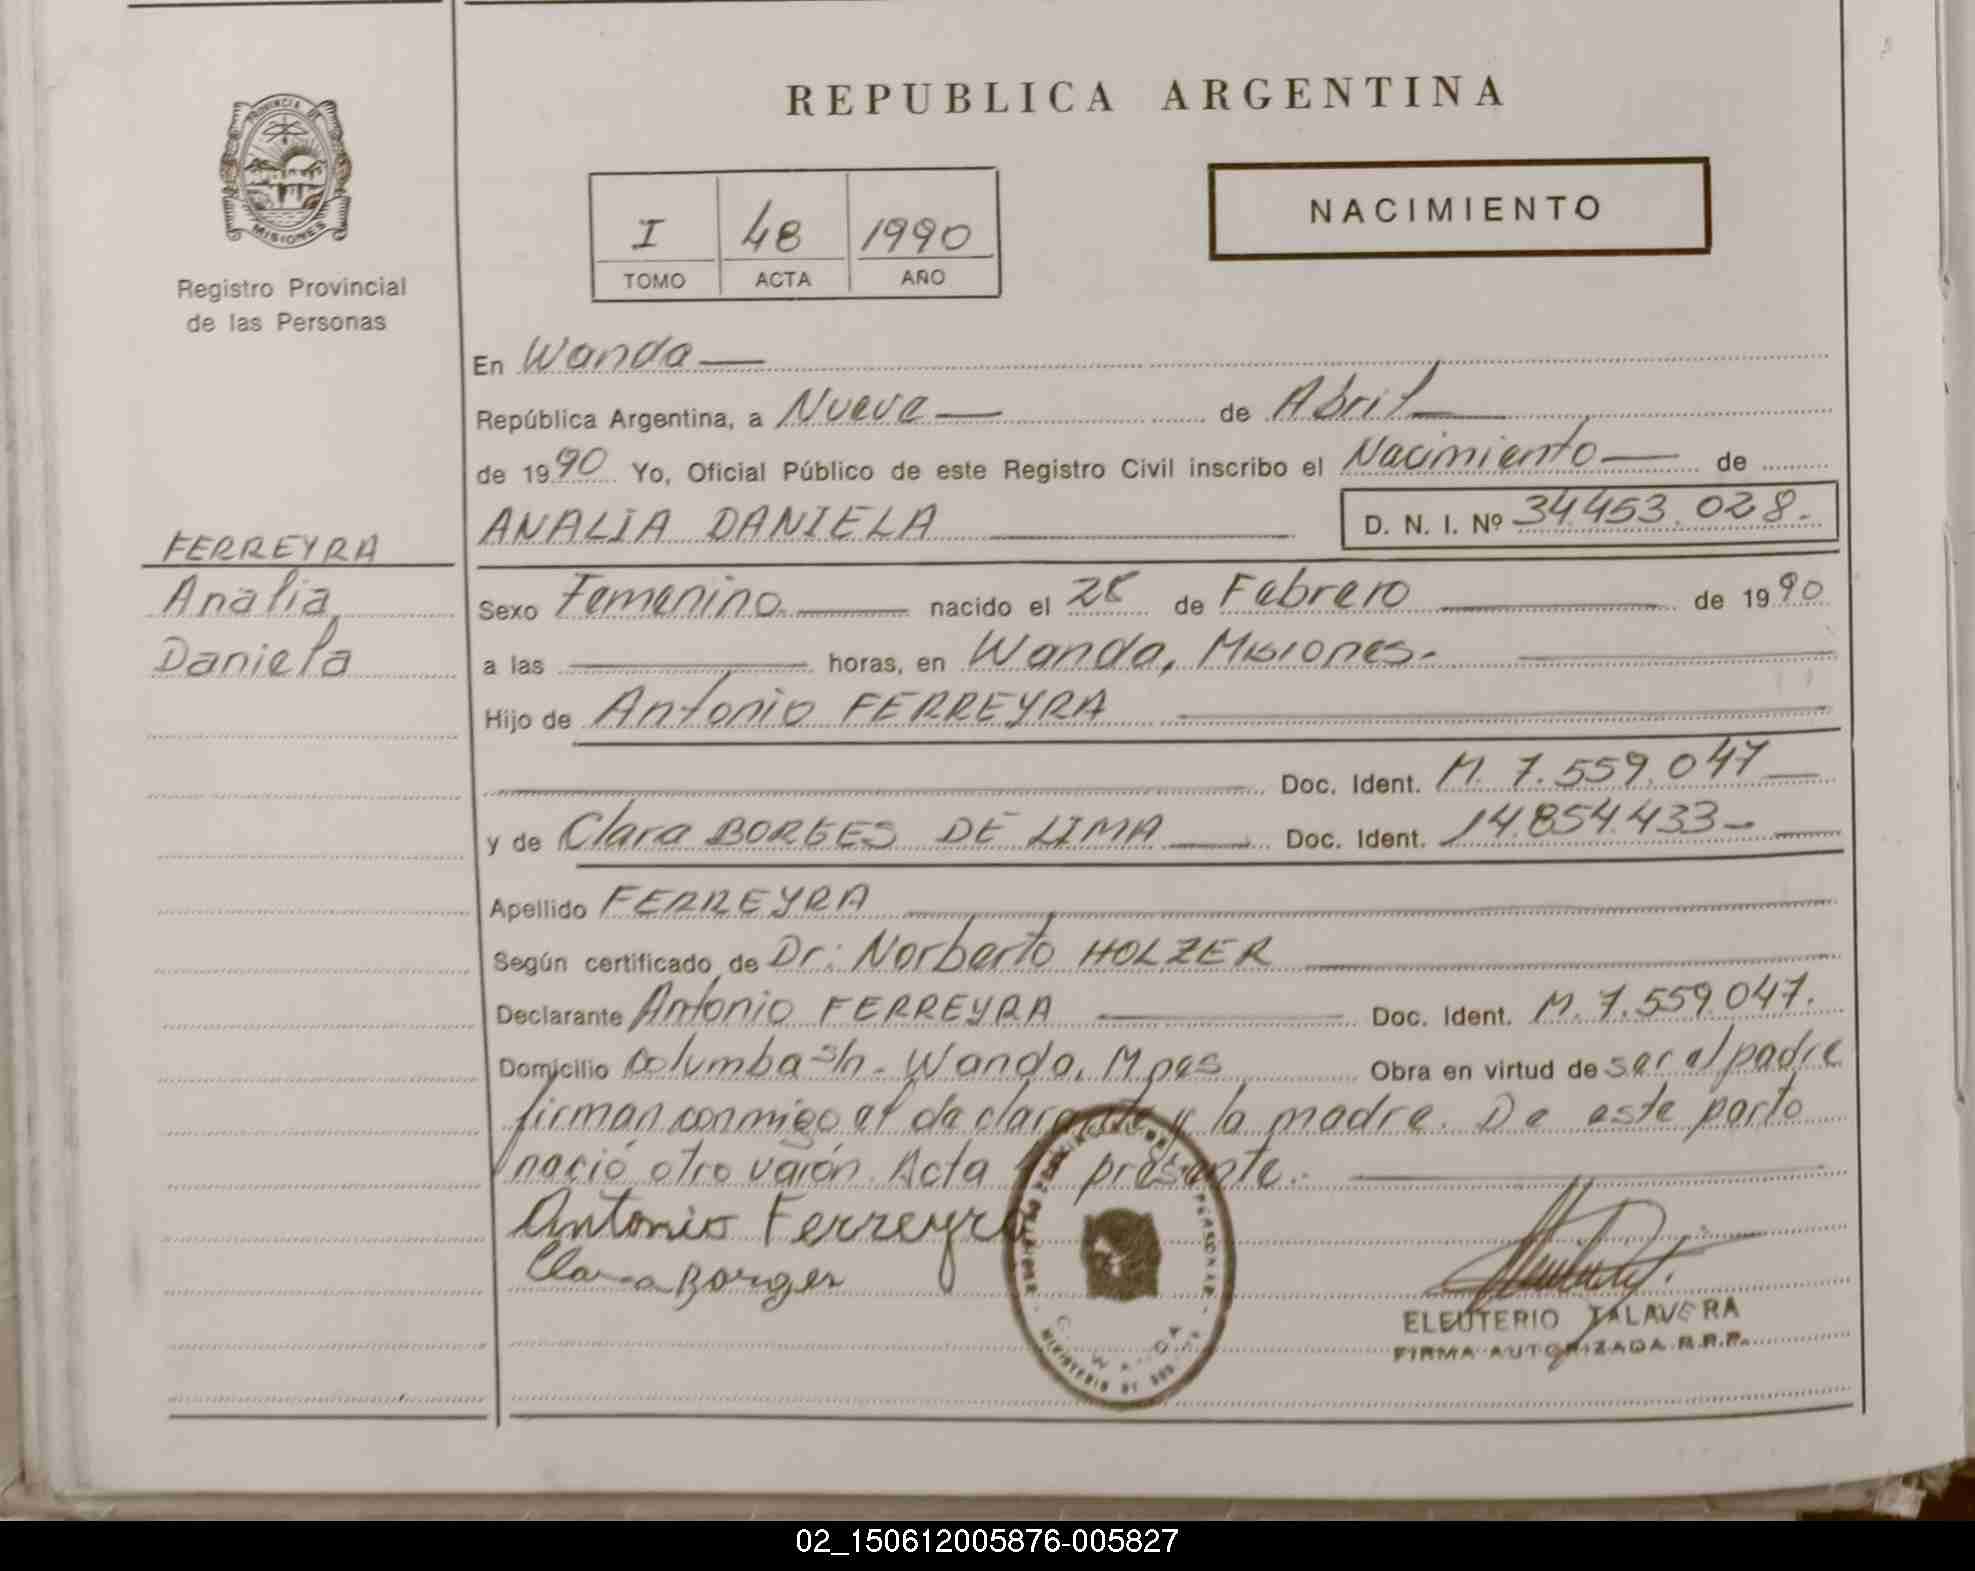 REPUBLICA ARGENTINA
PROVINCIA DE
MISIONES
Registro Provincial
de las Personas
I 48 1990
TOMO ACTA AÑO
NACIMIENTO
En Wanda
República Argentina, a Nueve de Abril
de 1990 Yo, Oficial Público de este Registro Civil inscribo el Nacimiento de
ANALIA DANIELA D. N. I. Nº 34.453.028.
FERREYRA
Analia
Daniela
Sexo Femenino nacido el de Febrero de 1990
a las horas, en Wanda, Misiones.
Hijo de Antonio FERREYRA
Doc. Ident. M. 7.559.047
y de Clara BORGES DE LIMA Doc. Ident. 14.854.433
Apellido FERREYRA
Según certificado de Dr: Norberto HOLZER
Declarante Antonio FERREYRA Doc. Ident. M. 7.559.047.
Domicilio Columba s/n. Wanda, Mnes Obra en virtud de ser el padre
firman conmigo el declarante y la madre. De este parto
nació otro varón. Acta presente.
Antonio Ferreyra
Clara Borges
ELEUTERIO TALAVERA
FIRMA AUTORIZADA R.R.P.
02_150612005876-005827